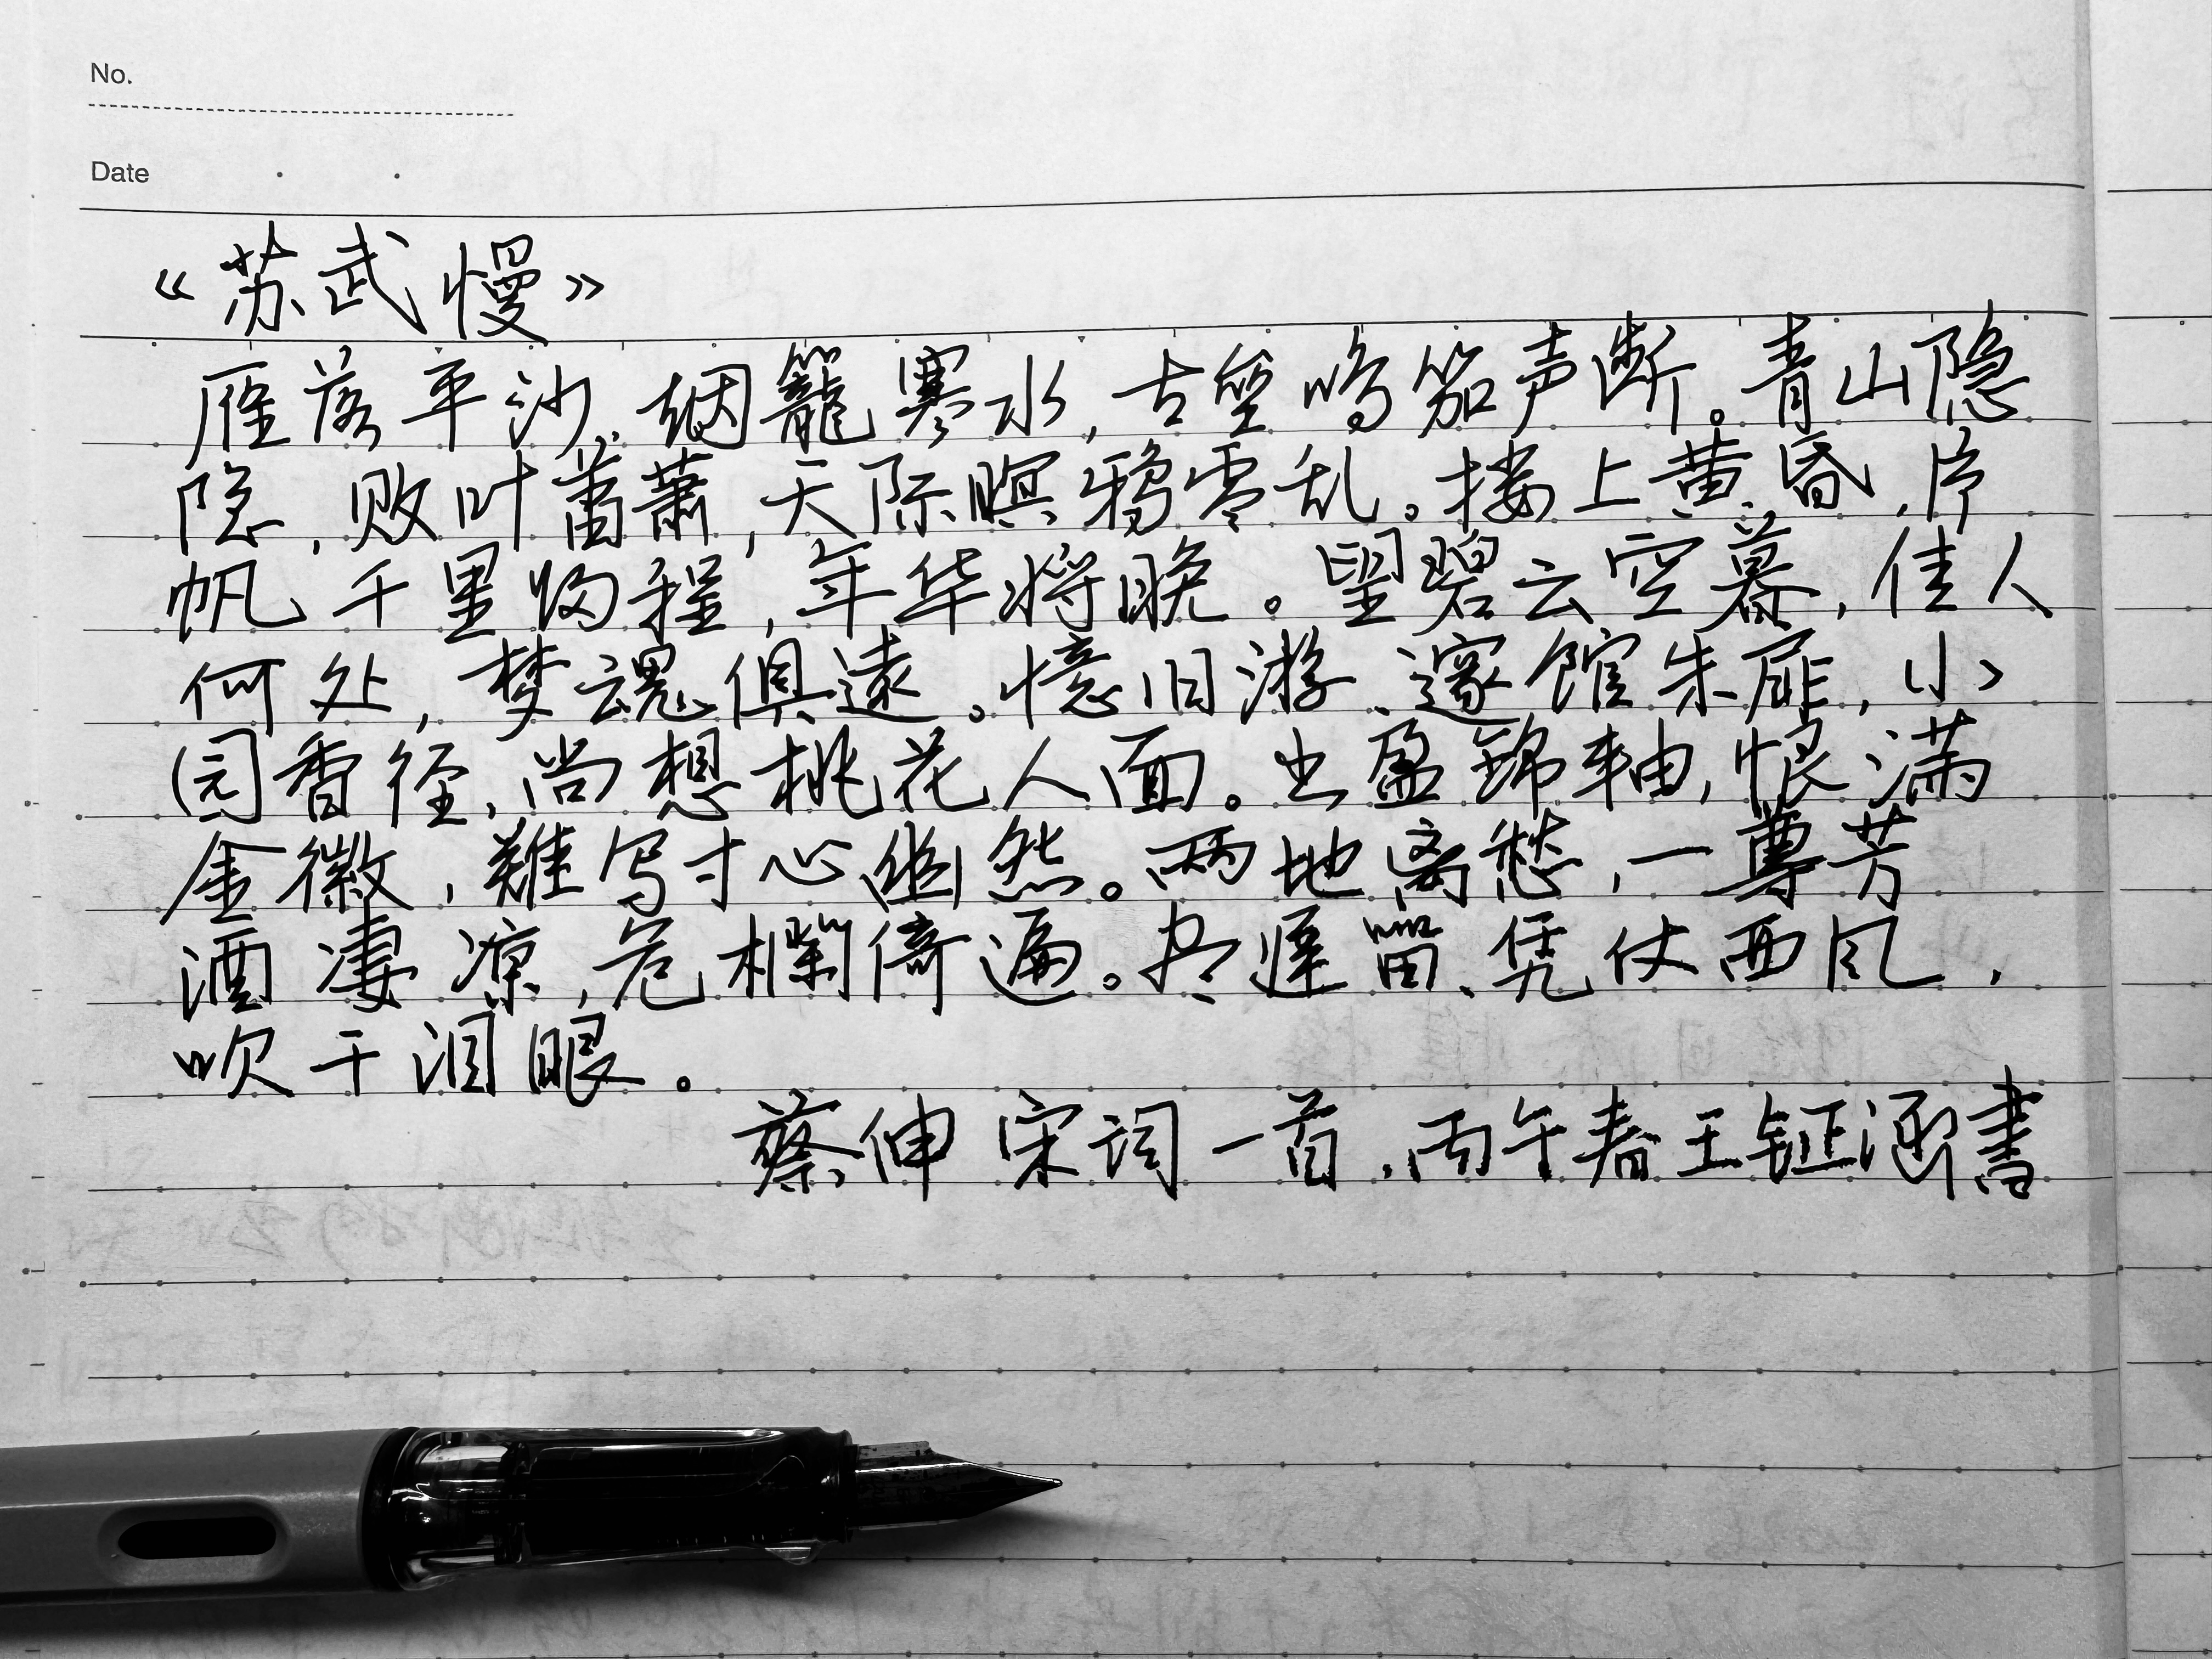 No.
Date
《苏武慢》
雁落平沙，烟籠寒水，古垒鸣笳声断。青山隐
隐，败叶萧萧，天际暝鸦零乱。楼上黄昏，片
帆千里归程，年华將晚。望碧云空暮，佳人
何处，梦魂俱遠。憶旧游、邃館朱扉，小
园香径，尚想桃花人面。书盈锦軸，恨满
金徽，難写寸心幽怨。两地离愁，一尊芳
酒凄凉，危欄倚遍。尽遲留、凭仗西风，
吹干泪眼。
蔡伸宋词一首，丙午春王钲涵書